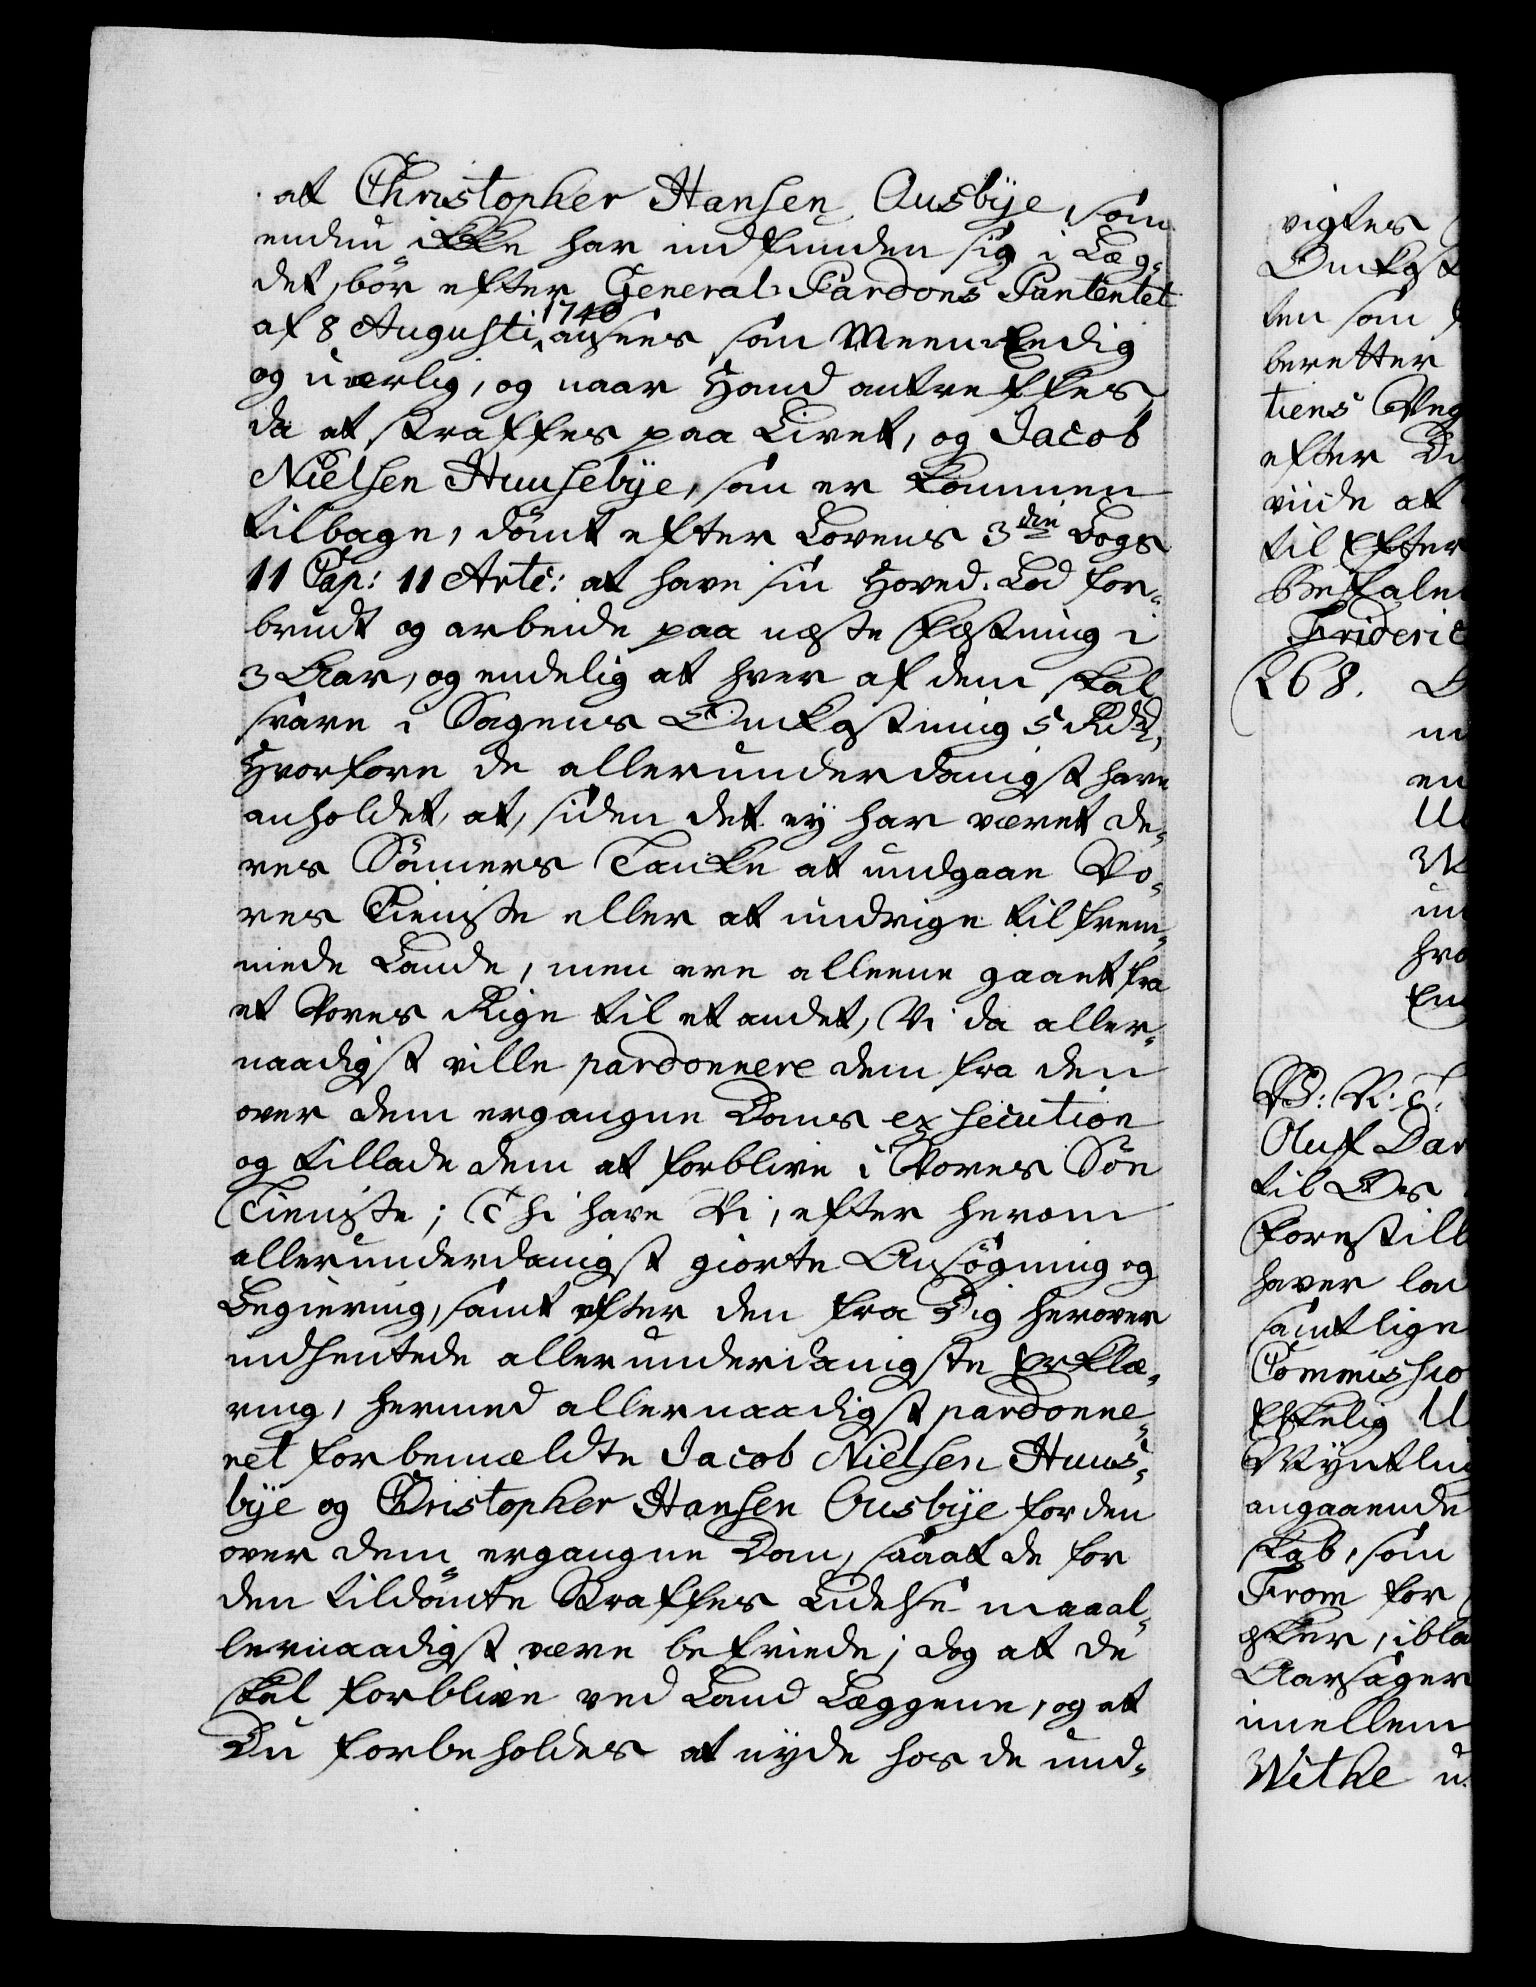 at Christopher Hansen Ausbÿe, som
endnu ikke har indfunden sig i Læg-
det, bör efter General-Pardons Pantentet
af 8 Augusti 1740 ansees som Meeneedig
og uærlig, og naar Hand antreffes,
da at straffes paa Livet, og Jacob
Nielsen Huusebÿe, som er kommen
tilbage, dömt efter Lovens 3die Bogs
11 Cap: 11 Artc: at have sin Hoved-Lod for-
brudt og arbeide paa næste Fæstning i
3 Aar, og endelig at hver af dem skal
svare i Sagens Omkostning 5 Rdr,
Hvorfore de allerunderdanigst have
anholdet, at, siden det eÿ har været de-
res Sönners Tanke at undgaae Vo-
res Tieniste eller at undvige til frem-
mede Lande, men ere alleene gaaet fra
et Vores Rige til et andet, Vi da aller-
naadigst ville pardonnere dem fra den
over dem ergangne Doms exsecution
og tillade dem at forblive i Vores Söe
Tieniste; Thi have Vi, efter herom
allerunderdanigst giorte Ansögning og
Begiering, samt efter den fra Dig herover
indhentede allerunderdanigste Erklæ-
ring, hermed allernaadigst pardonne-
ret forbemældte Jacob Nielsen Huus-
bÿe og Christopher Hansen Ousbÿe for den
over dem ergangne Dom, saa at de for
den tildömte Straffes Lidelse maa al-
lernaadigst være befriede; dog at de
skal forblive ved Land Læggene, og at
Du forbeholdes at nÿde hos de und-
vigtes
Omkost
ten som
beretter
tiens Veg
efter De
viide at
til Efter
Befalet
Frideric
268. D
en
hvo
V: V: T.
Oluf Dar
til Os
forestill
haver lad
samtlige
Commissio
Mÿntli
angaaende
skab, som
From for
ibla
Aarsager
imellem
Withe u.